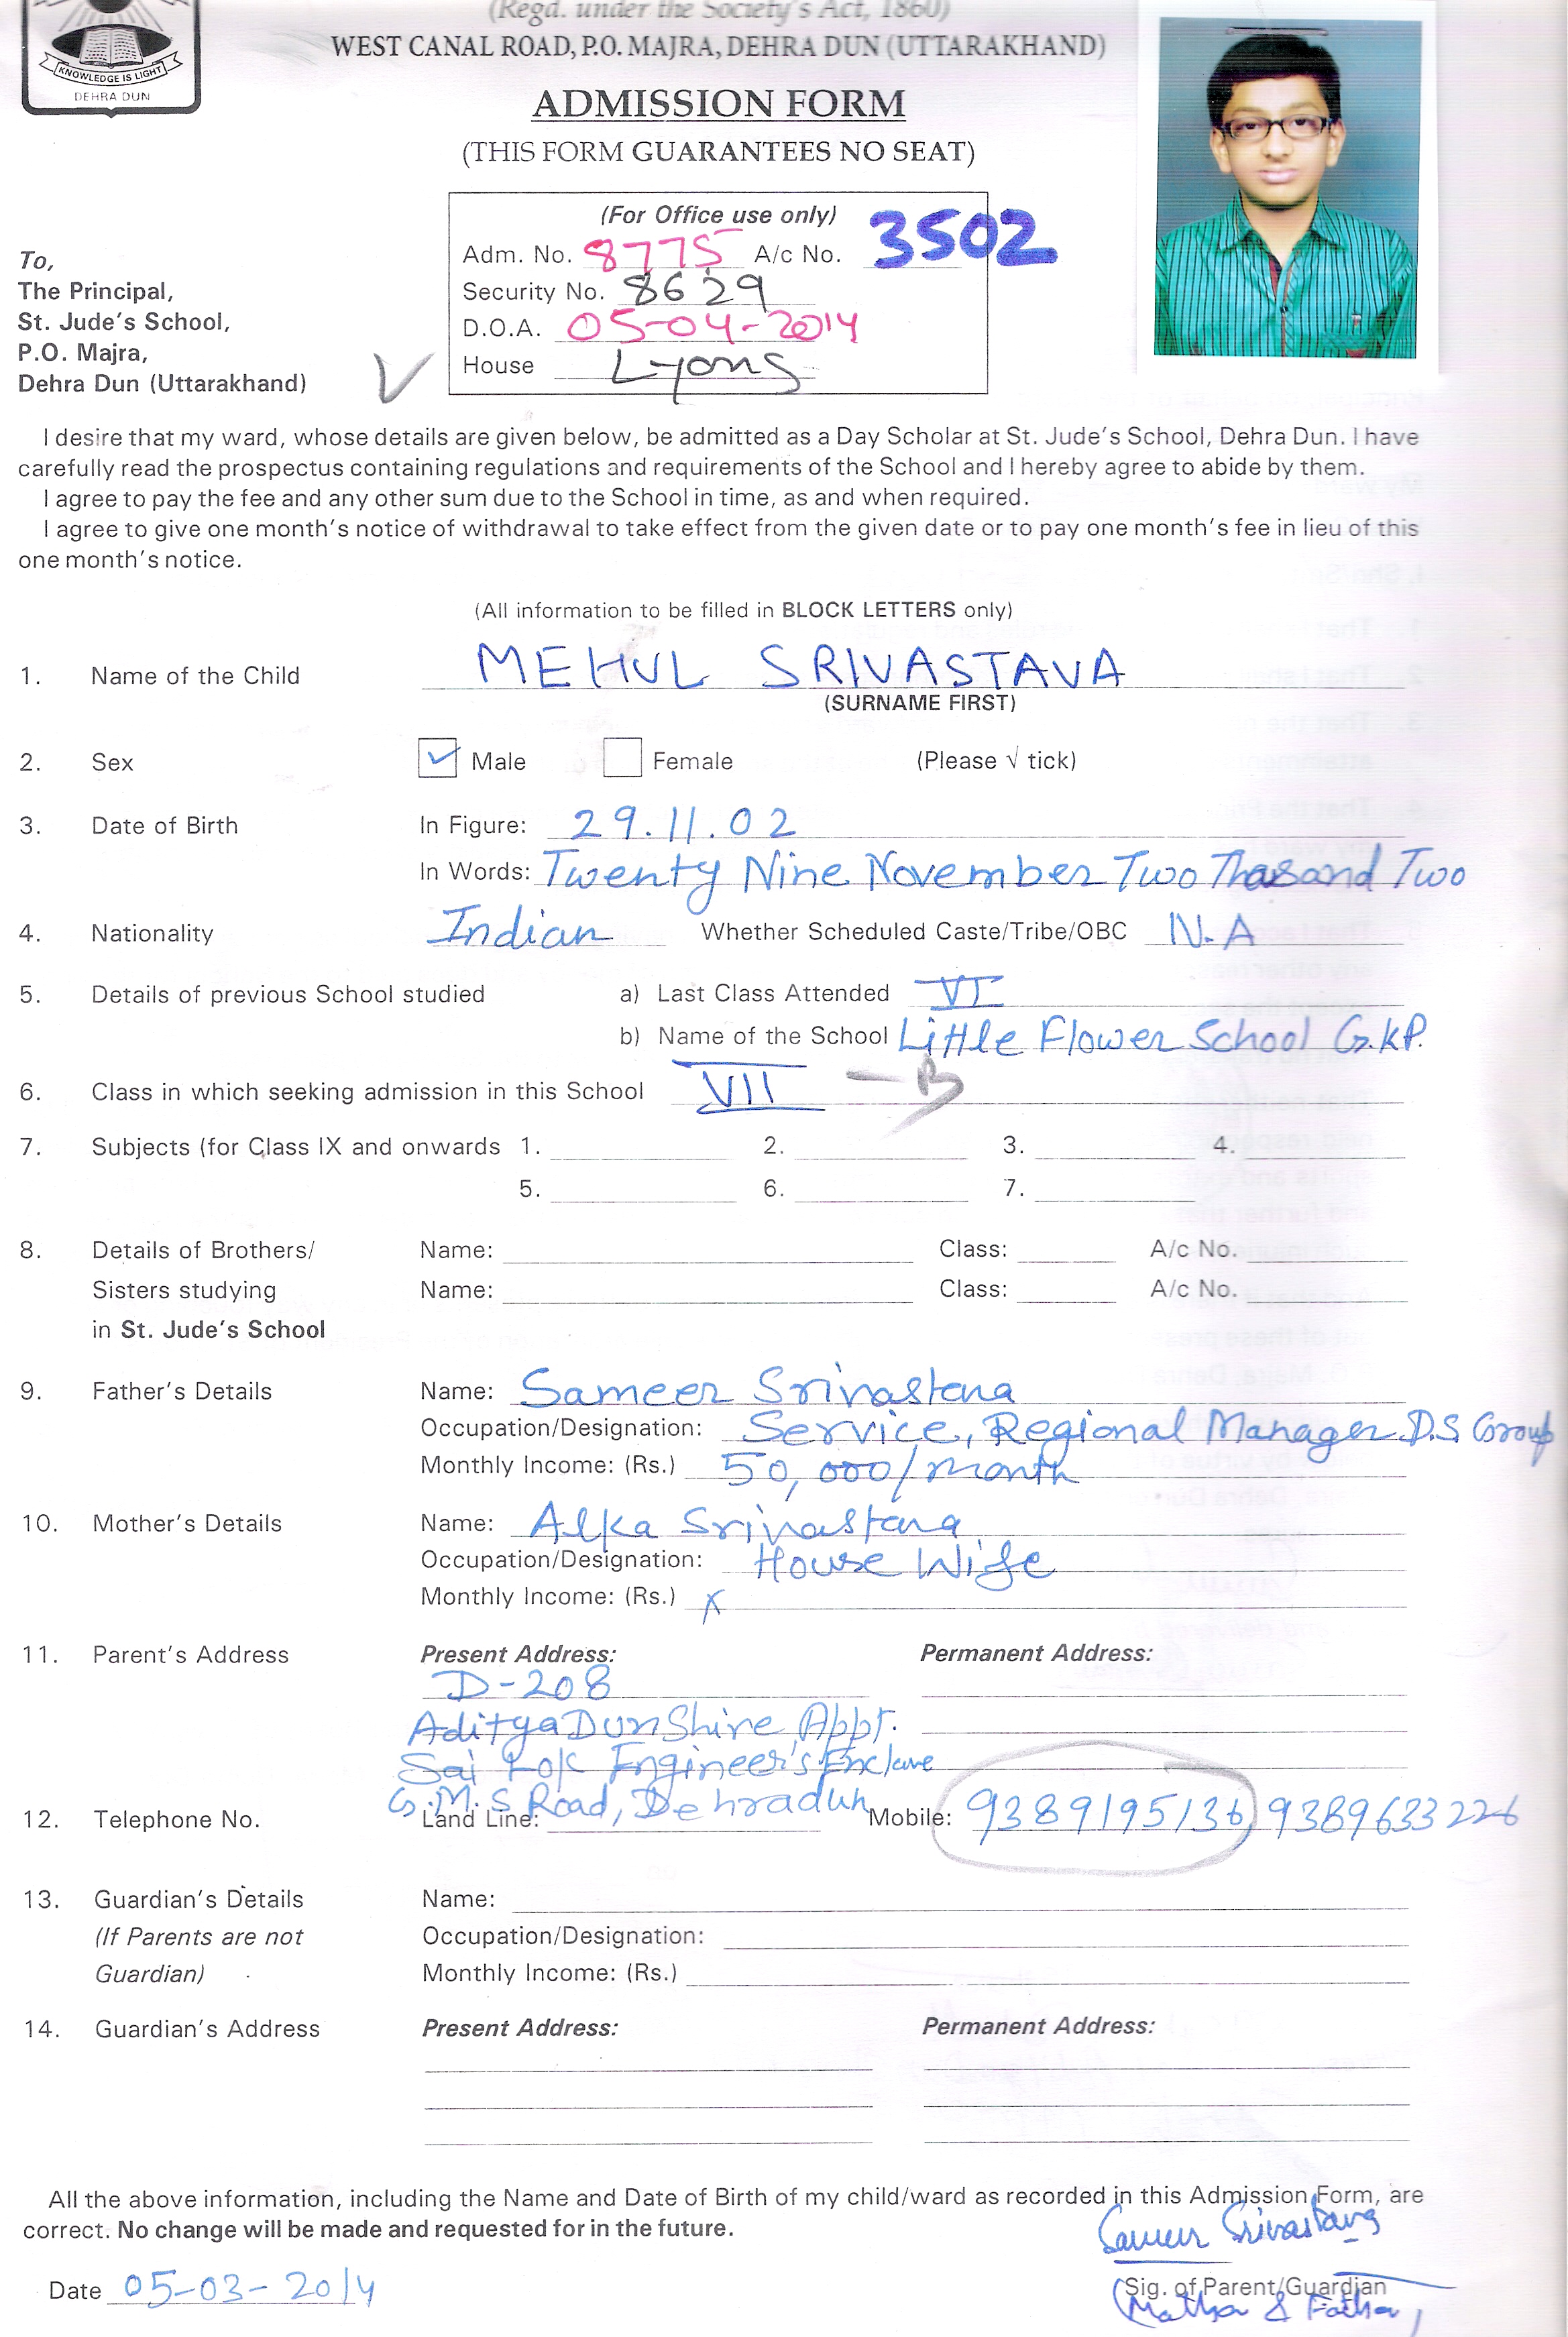 (Regd. under the Society's Act, 1860)
WEST CANAL ROAD, P.O. MAJRA, DEHRA DUN (UTTARAKHAND)
KNOWLEDGE IS LIGHT
DEHRA DUN
ADMISSION FORM
(THIS FORM GUARANTEES NO SEAT)
(For Office use only)
Adm. No. 8775 A/c No. 3502
Security No. 8629
D.O.A. 05-04-2014
House Lyons
To,
The Principal,
St. Jude's School,
P.O. Majra,
Dehra Dun (Uttarakhand)
I desire that my ward, whose details are given below, be admitted as a Day Scholar at St. Jude's School, Dehra Dun. I have
carefully read the prospectus containing regulations and requirements of the School and I hereby agree to abide by them.
I agree to pay the fee and any other sum due to the School in time, as and when required.
I agree to give one month's notice of withdrawal to take effect from the given date or to pay one month's fee in lieu of this
one month's notice.
(All information to be filled in BLOCK LETTERS only)
1. Name of the Child MEHUL SRIVASTAVA
(SURNAME FIRST)
2. Sex ✓ Male Female (Please √ tick)
3. Date of Birth In Figure: 29.11.02
In Words: Twenty Nine November Two Thasand Two
4. Nationality Indian Whether Scheduled Caste/Tribe/OBC N.A
5. Details of previous School studied a) Last Class Attended VI
b) Name of the School Little Flower School G.KP.
6. Class in which seeking admission in this School VII - B
7. Subjects (for Class IX and onwards 1. 2. 3. 4.
5. 6. 7.
8. Details of Brothers/ Name: Class: A/c No.
Sisters studying Name: Class: A/c No.
in St. Jude's School
9. Father's Details Name: Sameer Srivastava
Occupation/Designation: Service, Regional Manager D.S. Group
Monthly Income: (Rs.) 50,000/month
10. Mother's Details Name: Alka Srivastava
Occupation/Designation: House Wife
Monthly Income: (Rs.) x
11. Parent's Address Present Address: Permanent Address:
D-208
Aditya Dun Shire Appt.
Sai Lok Engineer's Enclave
G.M.S Road, Dehradun
12. Telephone No. Land Line: Mobile: 9389195136, 9389633226
13. Guardian's Details Name:
(If Parents are not Occupation/Designation:
Guardian) Monthly Income: (Rs.)
14. Guardian's Address Present Address: Permanent Address:
All the above information, including the Name and Date of Birth of my child/ward as recorded in this Admission Form, are
correct. No change will be made and requested for in the future.
Sameer Srivastava
Date 05-03-2014 Sig. of Parent/Guardian
(Mother & Father)